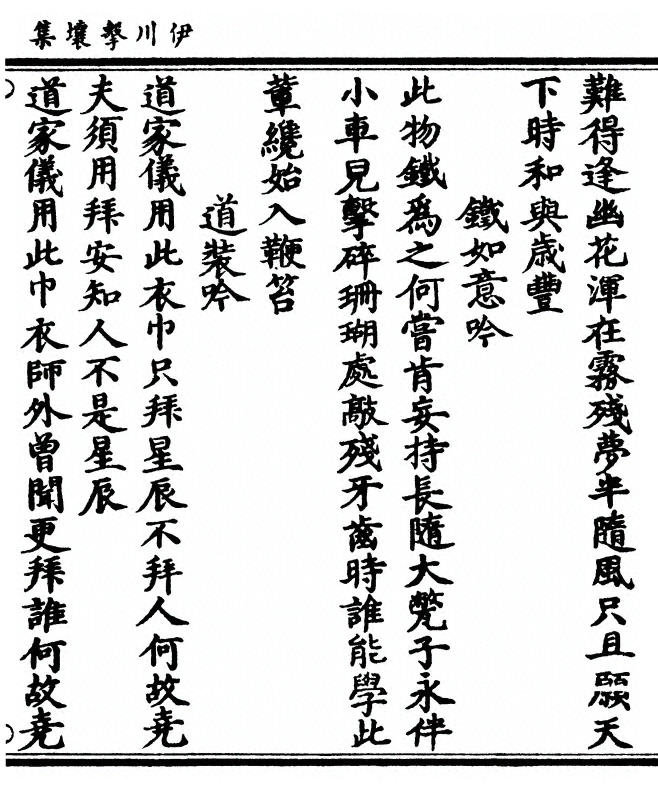 伊川擊壤集
難得逢幽花渾在霧殘夢半隨風只且願天
下時和與歲豐
鐵如意吟
此物鐵爲之何嘗肯妄持長隨大𤮕子永伴
小車兒擊碎珊瑚處敲殘牙齒時誰能學此
輩纔始入鞭笞
道裝吟
道家儀用此衣巾只拜星辰不拜人何故堯
夫須用拜安知人不是星辰
道家儀用此巾衣師外曾聞更拜誰何故堯